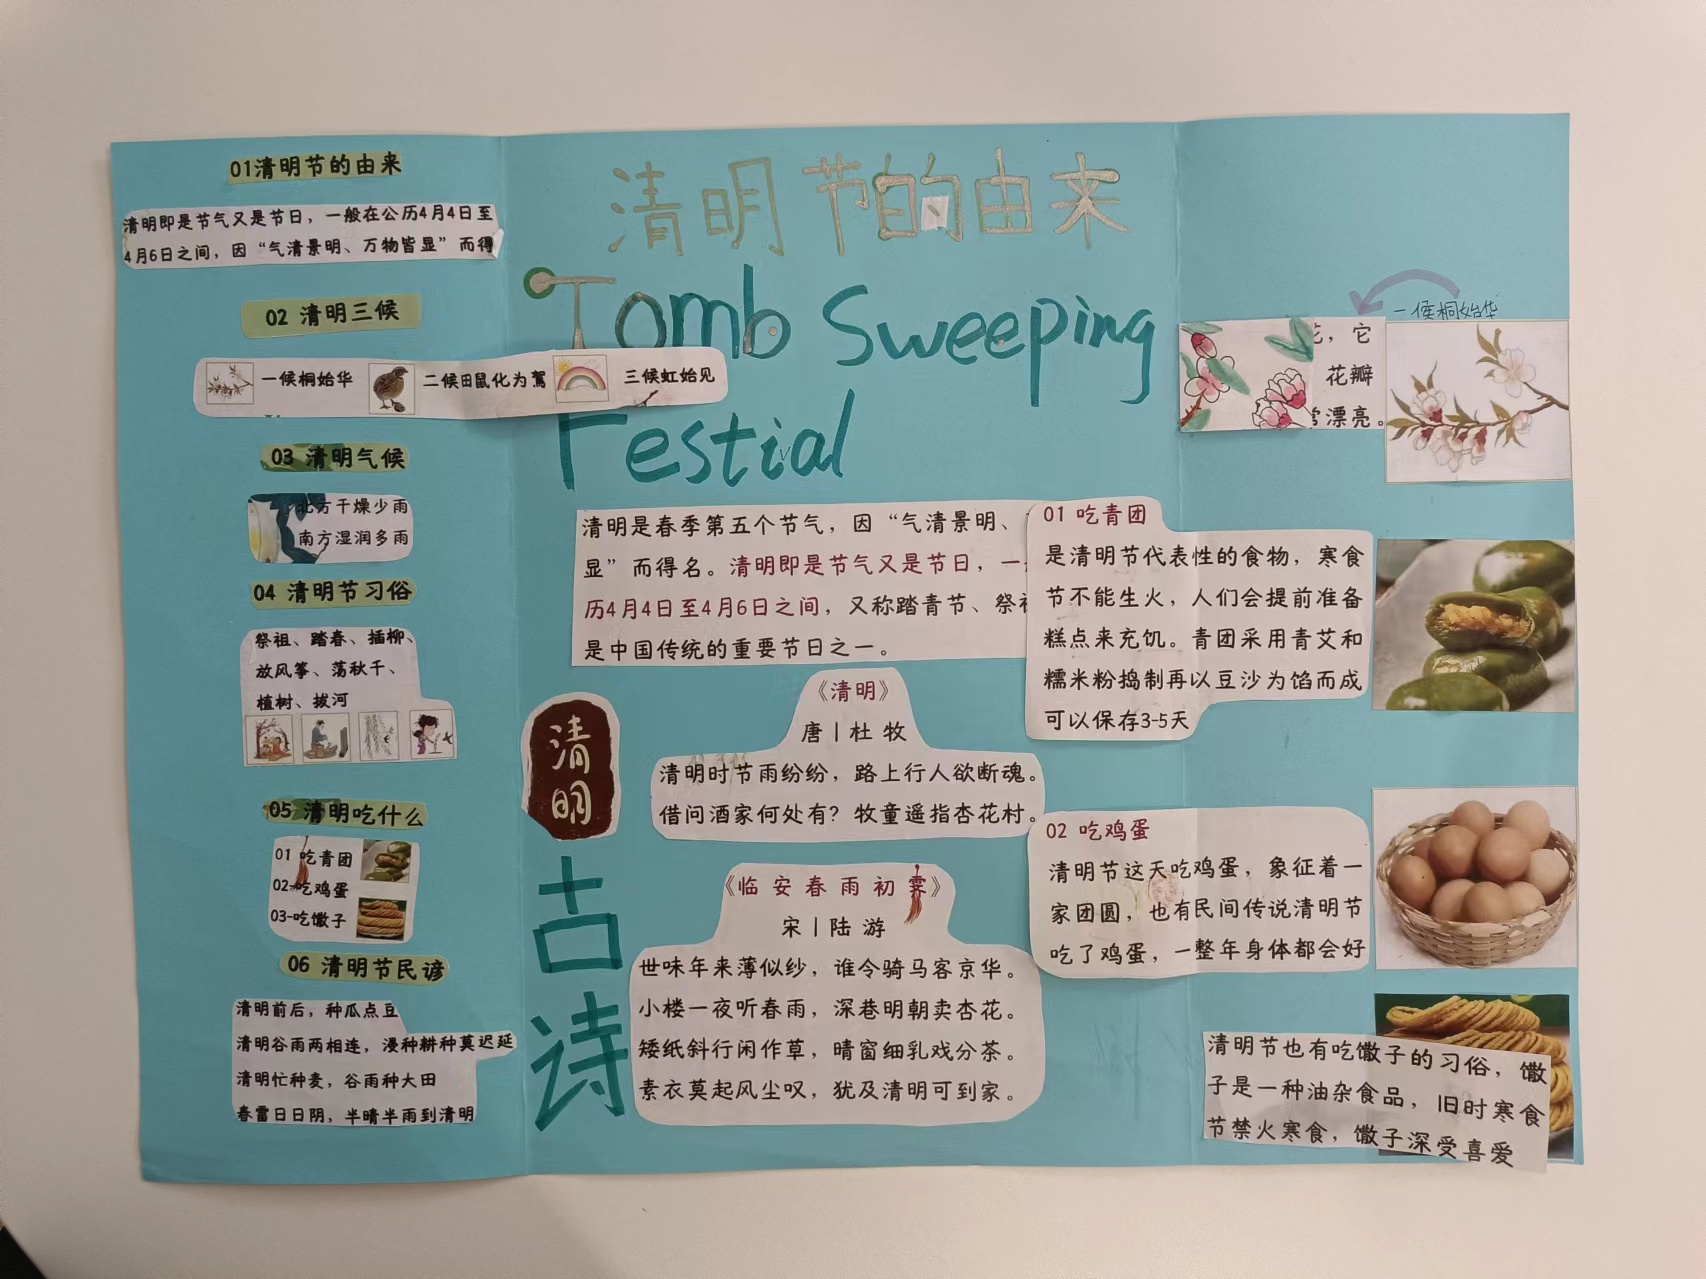 01清明节的由来
清明即是节气又是节日，一般在公历4月4日至
4月6日之间，因“气清景明、万物皆显”而得
02 清明三候
一候桐始华
二候田鼠化为鴽
三候虹始见
03 清明气候
北方干燥少雨
南方湿润多雨
04 清明节习俗
祭祖、踏春、插柳、
放风筝、荡秋千、
植树、拔河
05 清明吃什么
01 吃青团
02-吃鸡蛋
03-吃馓子
06 清明节民谚
清明前后，种瓜点豆
清明谷雨两相连，浸种耕种莫迟延
清明忙种麦，谷雨种大田
春雷日日阴，半晴半雨到清明
清明节的由来
Tomb Sweeping
Festival
清明是春季第五个节气，因“气清景明、
显”而得名。清明即是节气又是节日，一
历4月4日至4月6日之间，又称踏青节、祭祖
是中国传统的重要节日之一。
清明
古诗
《清明》
唐丨杜 牧
清明时节雨纷纷，路上行人欲断魂。
借问酒家何处有？牧童遥指杏花村。
《临安春雨初霁》
宋丨陆 游
世味年来薄似纱，谁令骑马客京华。
小楼一夜听春雨，深巷明朝卖杏花。
矮纸斜行闲作草，晴窗细乳戏分茶。
素衣莫起风尘叹，犹及清明可到家。
一候桐始华
花，它
花瓣
常漂亮。
01 吃青团
是清明节代表性的食物，寒食
节不能生火，人们会提前准备
糕点来充饥。青团采用青艾和
糯米粉捣制再以豆沙为馅而成
可以保存3-5天
02 吃鸡蛋
清明节这天吃鸡蛋，象征着一
家团圆，也有民间传说清明节
吃了鸡蛋，一整年身体都会好
清明节也有吃馓子的习俗，馓
子是一种油杂食品，旧时寒食
节禁火寒食，馓子深受喜爱